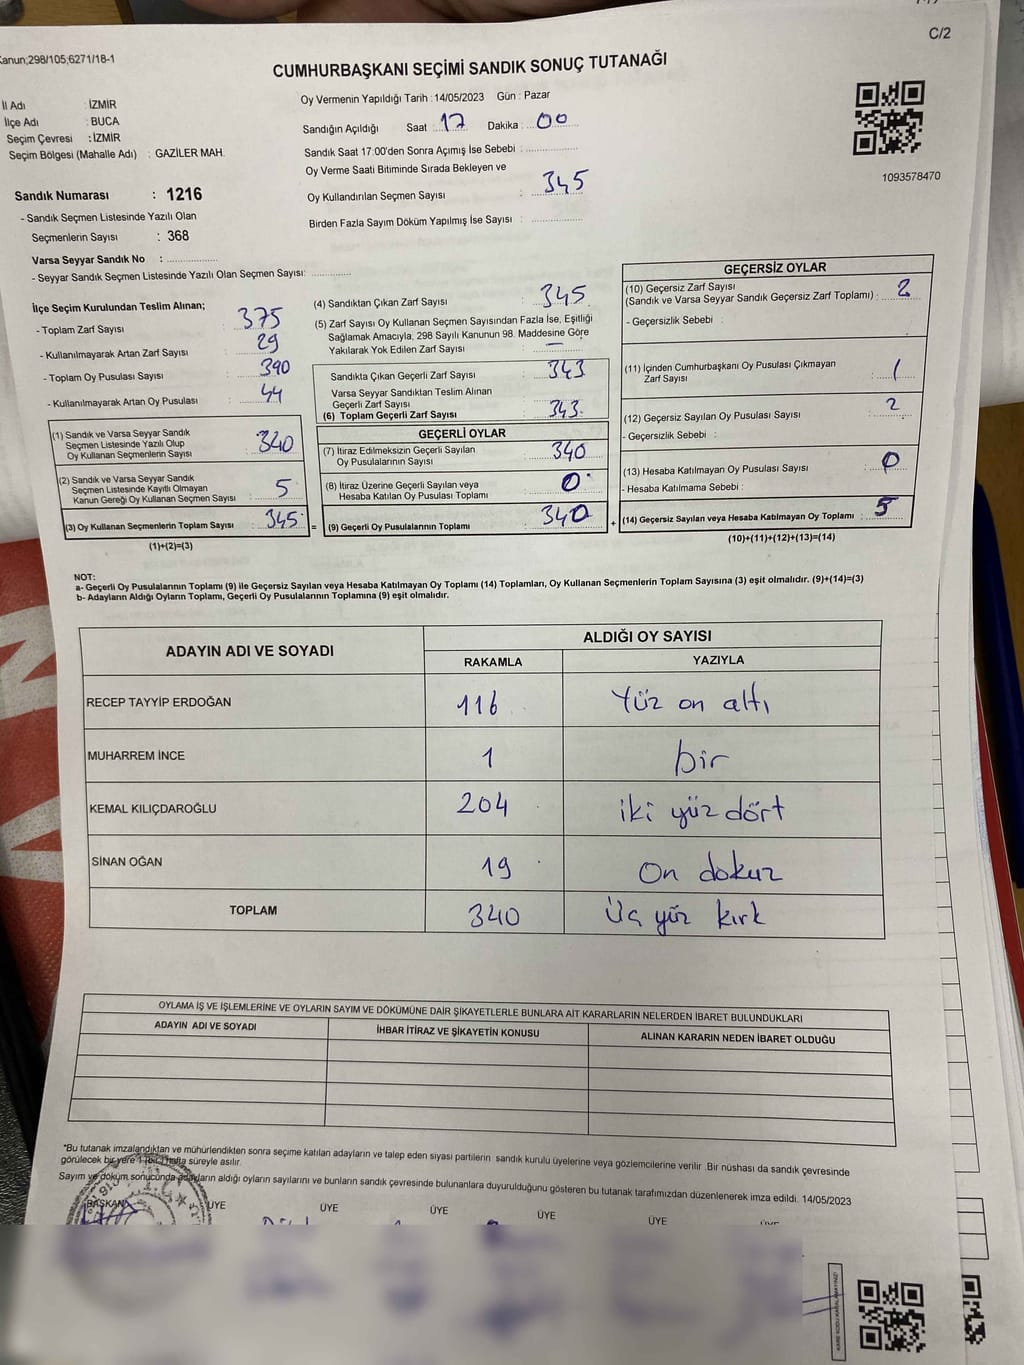 Kanun;298/105;6271/18-1
C/2
CUMHURBAŞKANI SEÇİMİ SANDIK SONUÇ TUTANAĞI
İl Adı : İZMİR
İlçe Adı : BUCA
Seçim Çevresi : İZMİR
Seçim Bölgesi (Mahalle Adı) : GAZİLER MAH.
Oy Vermenin Yapıldığı Tarih : 14/05/2023 Gün : Pazar
Sandığın Açıldığı Saat 17 Dakika : 00
Sandık Saat 17:00'den Sonra Açımış İse Sebebi :
Oy Verme Saati Bitiminde Sırada Bekleyen ve
Oy Kullandırılan Seçmen Sayısı : 345
Birden Fazla Sayım Döküm Yapılmış İse Sayısı :
1093578470
Sandık Numarası : 1216
- Sandık Seçmen Listesinde Yazılı Olan
Seçmenlerin Sayısı : 368
Varsa Seyyar Sandık No :
- Seyyar Sandık Seçmen Listesinde Yazılı Olan Seçmen Sayısı:
İlçe Seçim Kurulundan Teslim Alınan;
- Toplam Zarf Sayısı : 375
- Kullanılmayarak Artan Zarf Sayısı : 29
- Toplam Oy Pusulası Sayısı : 390
- Kullanılmayarak Artan Oy Pusulası : 44
(1) Sandık ve Varsa Seyyar Sandık
Seçmen Listesinde Yazılı Olup
Oy Kullanan Seçmenlerin Sayısı : 340
(2) Sandık ve Varsa Seyyar Sandık
Seçmen Listesinde Kayıtlı Olmayan
Kanun Gereği Oy Kullanan Seçmen Sayısı : 5
(3) Oy Kullanan Seçmenlerin Toplam Sayısı : 345 =
(1)+(2)=(3)
(4) Sandıktan Çıkan Zarf Sayısı : 345
(5) Zarf Sayısı Oy Kullanan Seçmen Sayısından Fazla İse, Eşitliği
Sağlamak Amacıyla, 298 Sayılı Kanunun 98. Maddesine Göre
Yakılarak Yok Edilen Zarf Sayısı : —
Sandıkta Çıkan Geçerli Zarf Sayısı : 343
Varsa Seyyar Sandıktan Teslim Alınan
Geçerli Zarf Sayısı
(6) Toplam Geçerli Zarf Sayısı : 343
GEÇERLİ OYLAR
(7) İtiraz Edilmeksizin Geçerli Sayılan
Oy Pusulalarının Sayısı : 340
(8) İtiraz Üzerine Geçerli Sayılan veya
Hesaba Katılan Oy Pusulası Toplamı : 0
(9) Geçerli Oy Pusulalarının Toplamı : 340 +
GEÇERSİZ OYLAR
(10) Geçersiz Zarf Sayısı
(Sandık ve Varsa Seyyar Sandık Geçersiz Zarf Toplamı) : 2
- Geçersizlik Sebebi :
(11) İçinden Cumhurbaşkanı Oy Pusulası Çıkmayan
Zarf Sayısı : 1
(12) Geçersiz Sayılan Oy Pusulası Sayısı : 2
- Geçersizlik Sebebi :
(13) Hesaba Katılmayan Oy Pusulası Sayısı : 0
- Hesaba Katılmama Sebebi :
(14) Geçersiz Sayılan veya Hesaba Katılmayan Oy Toplamı : 5
(10)+(11)+(12)+(13)=(14)
NOT:
a- Geçerli Oy Pusulalarının Toplamı (9) ile Geçersiz Sayılan veya Hesaba Katılmayan Oy Toplamı (14) Toplamları, Oy Kullanan Seçmenlerin Toplam Sayısına (3) eşit olmalıdır. (9)+(14)=(3)
b- Adayların Aldığı Oyların Toplamı, Geçerli Oy Pusulalarının Toplamına (9) eşit olmalıdır.
ADAYIN ADI VE SOYADI
ALDIĞI OY SAYISI
RAKAMLA YAZIYLA
RECEP TAYYİP ERDOĞAN 116 Yüz on altı
MUHARREM İNCE 1 bir
KEMAL KILIÇDAROĞLU 204 iki yüz dört
SİNAN OĞAN 19 On dokuz
TOPLAM 340 Üç yüz kırk
OYLAMA İŞ VE İŞLEMLERİNE VE OYLARIN SAYIM VE DÖKÜMÜNE DAİR ŞİKAYETLERLE BUNLARA AİT KARARLARIN NELERDEN İBARET BULUNDUKLARI
ADAYIN ADI VE SOYADI İHBAR İTİRAZ VE ŞİKAYETİN KONUSU ALINAN KARARIN NEDEN İBARET OLDUĞU
*Bu tutanak imzalandıktan ve mühürlendikten sonra seçime katılan adayların ve talep eden siyasi partilerin sandık kurulu üyelerine veya gözlemcilerine verilir. Bir nüshası da sandık çevresinde
görülecek bir yere 1 (bir) hafta süreyle asılır.
Sayım ve döküm sonucunda adayların aldığı oyların sayılarını ve bunların sandık çevresinde bulunanlara duyurulduğunu gösteren bu tutanak tarafımızdan düzenlenerek imza edildi. 14/05/2023
BAŞKAN ÜYE ÜYE ÜYE ÜYE ÜYE ÜYE